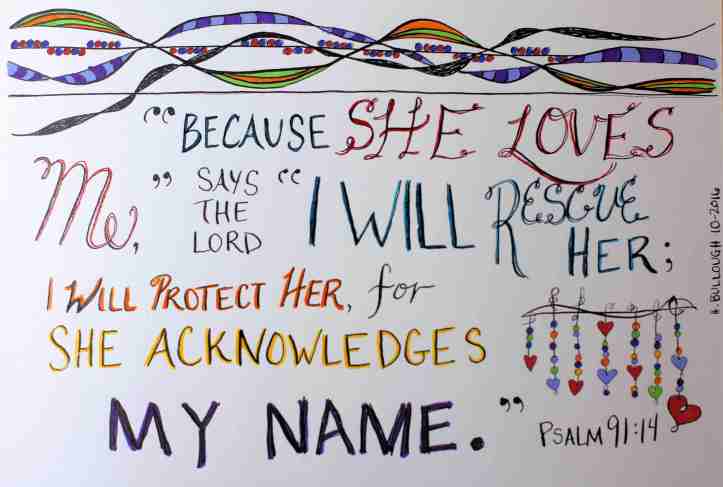 “BECAUSE SHE LOVES
Me,” SAYS THE LORD “I WILL RESCUE
HER;
I WILL PROTECT HER, for
SHE ACKNOWLEDGES
MY NAME.”
PSALM 91:14
H. BULLOUGH 10-2016